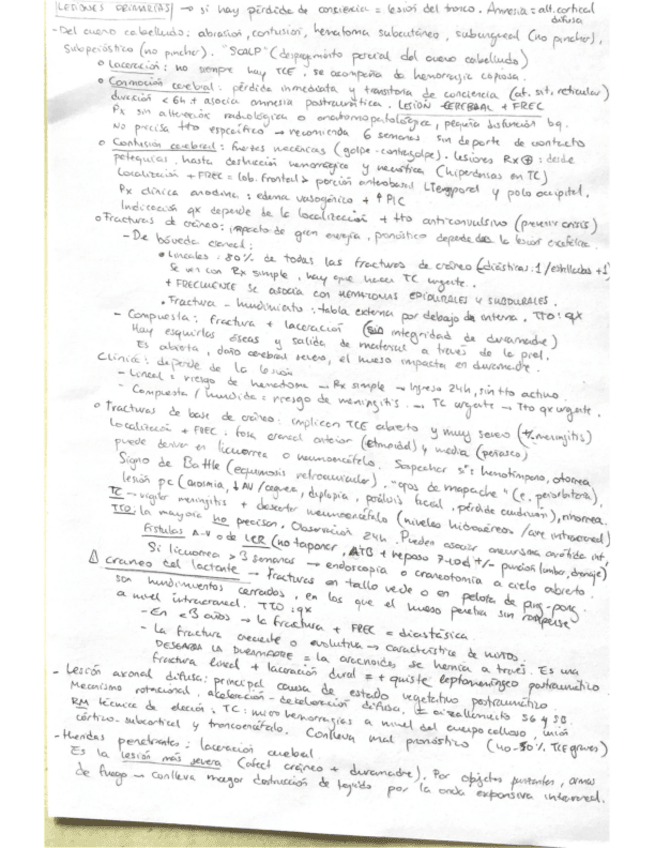 LESIONES PRIMARIAS → si hay pérdida de conciencia = lesión del tronco. Amnesia: alt. cortical difusa
- Del cuero cabelludo: abrasión, contusión, hematoma subcutáneo, subgaleal (no pinchar),
Subperióstico (no pinchar). "SCALP" (despegamiento parcial del cuero cabelludo)
○ Laceración: no siempre hay TCE. se acompaña de hemorragia copiosa.
○ Conmoción cerebral: pérdida inmediata y transitoria de conciencia (at. sit. reticular)
duración < 6h + asocia amnesia postraumática. LESIÓN CEREBRAL + FREC
Px sin alteración radiológica o anatomopatológica, pequeña disfunción bq.
No precisa tto específico → recomienda 6 semanas sin deporte de contacto
○ Contusión cerebral: fuerzas mecánicas (golpe-contragolpe). lesiones Rx ⊕: desde
petequias hasta destrucción hemorrágica y necrótica (hiperdensas en TC)
Localización + FREC = lob. frontal > porción anterobasal L. Temporal y polo occipital.
Px clínica anodina: edema vasogénico + ↑ PIC
Indicación qx depende de la localización + tto anticonvulsivo (prevenir crisis)
○ Fracturas de cráneo: impacto de gran energía, pronóstico depende de la lesión encefálica.
- De bóveda craneal:
• Lineales: 80% de todas las fracturas de cráneo (diástasicas: 1/estrelladas +1)
Se ven con Rx simple, hay que hacer TC urgente.
+ FRECUENTE se asocia con HEMATOMAS EPIDURALES Y SUBDURALES.
• Fractura-hundimiento: tabla externa por debajo de interna. TTO: qx
- Compuesta: fractura + laceración (sin integridad de duramadre)
Hay esquirlas óseas y salida de material a través de la piel.
Es abierta, daño cerebral severo, el hueso impacta en duramadre.
Clínica: depende de la lesión
- Lineal = riesgo de hematoma → Rx simple → Ingreso 24h, sin tto activo.
- Compuesta / hundida = riesgo de meningitis → TC urgente → Tto qx urgente.
○ Fracturas de base de cráneo: implican TCE abierto y muy severo (+/- meningitis)
Localización + FREC: fosa craneal anterior (etmoidal) y media (peñasco)
puede derivar en licuorrea o neumoencéfalo. Sospechar si: hemotímpano, otorrea
Signo de Battle (equimosis retroauricular). "ojos de mapache" (e. periorbitaria),
lesión pc (anosmia, ↓AV/ceguera, diplopia, parálisis facial, pérdida audición), rinorrea.
TC → vigilar meningitis + descartar neumoencéfalo (niveles hidroaéreos / aire intracraneal)
TTO: la mayoría no precisan. Observación 24h. Pueden asociar aneurisma carótida int,
Fístulas A-V o de LCR (no taponar, ATB + reposo 7-10d +/- punción lumbar, drenaje)
Si licuorrea > 3 semanas → endoscopia o craneotomía a cielo abierto.
⚠ craneo del lactante → Fracturas en tallo verde o en pelota de ping-pong.
son hundimientos cerrados, en los que el hueso penetra sin romperse
a nivel intracraneal. TTO: qx
- En < 3 años → la fractura + FREC = diastásica.
- La fractura creciente o evolutiva → característica de niños.
DESGARRA LA DURAMADRE = la aracnoides se hernia a través. Es una
fractura lineal + laceración dural = + quiste leptomeníngeo postraumático
- Lesión axonal difusa: principal causa de estado vegetativo postraumático.
Mecanismo rotacional, aceleración-desaceleración difusa, ± cizallamiento SG y SB.
RM técnica de elección; TC: micro hemorragias a nivel del cuerpo calloso, unión
córtico-subcortical y troncoencéfalo. Conlleva mal pronóstico (40-50% TCE graves)
- Heridas penetrantes: laceración cerebral
Es la lesión más severa (afect cráneo + duramadre). Por objetos punzantes, armas
de fuego → conlleva mayor destrucción de tejido por la onda expansiva intracraneal.